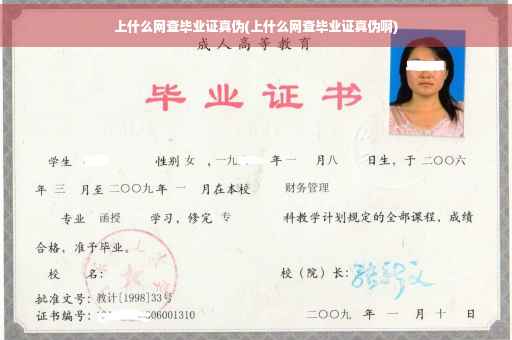 上什么网查毕业证真伪(上什么网查毕业证真伪啊)
成人高等教育
毕业证书
学生 性别 女 ，一九 年 一 月八 日生，于 二〇〇六
年 三 月至 二〇〇九 年 一 月在本校 财务管理
专业 函授 学习，修完 专 科教学计划规定的全部课程，成绩
合格，准予毕业。
校 名： 校（院）长：
批准文号：教计[1998]33号
证书编号： 606001310 二〇〇九 年 一 月 十 日